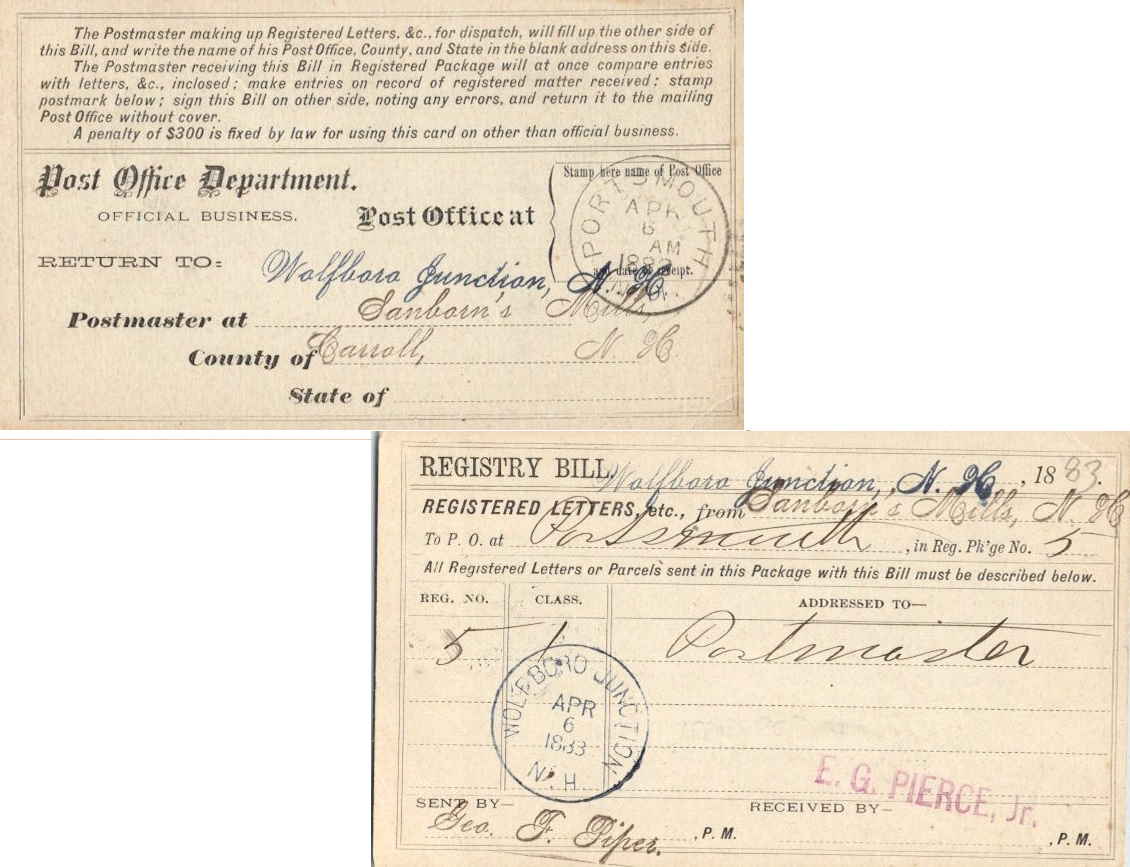 The Postmaster making up Registered Letters, &c., for dispatch, will fill up the other side of
this Bill, and write the name of his Post Office, County, and State in the blank address on this side.
The Postmaster receiving this Bill in Registered Package will at once compare entries
with letters, &c., inclosed; make entries on record of registered matter received; stamp
postmark below; sign this Bill on other side, noting any errors, and return it to the mailing
Post Office without cover.
A penalty of $300 is fixed by law for using this card on other than official business.
Post Office Department.
OFFICIAL BUSINESS.
Post Office at
Stamp here name of Post Office
and date of receipt.
PORTSMOUTH
APR
6
AM
1883
N.H.
RETURN TO:
Wolfboro Junction, N. H.
Postmaster at Sanborn's Mills,
County of Carroll, N. H.
State of
REGISTRY BILL Wolfboro Junction, N. H., 1883.
REGISTERED LETTERS, etc., from Sanborn's Mills, N. H
To P. O. at Portsmouth, in Reg. Pk'ge No. 5
All Registered Letters or Parcels sent in this Package with this Bill must be described below.
REG. NO. CLASS. ADDRESSED TO—
5 1 Postmaster
WOLFBORO JUNCTION
APR
6
1883
N. H.
E. G. PIERCE, Jr.
SENT BY— RECEIVED BY—
Geo. F. Piper. , P. M. , P. M.